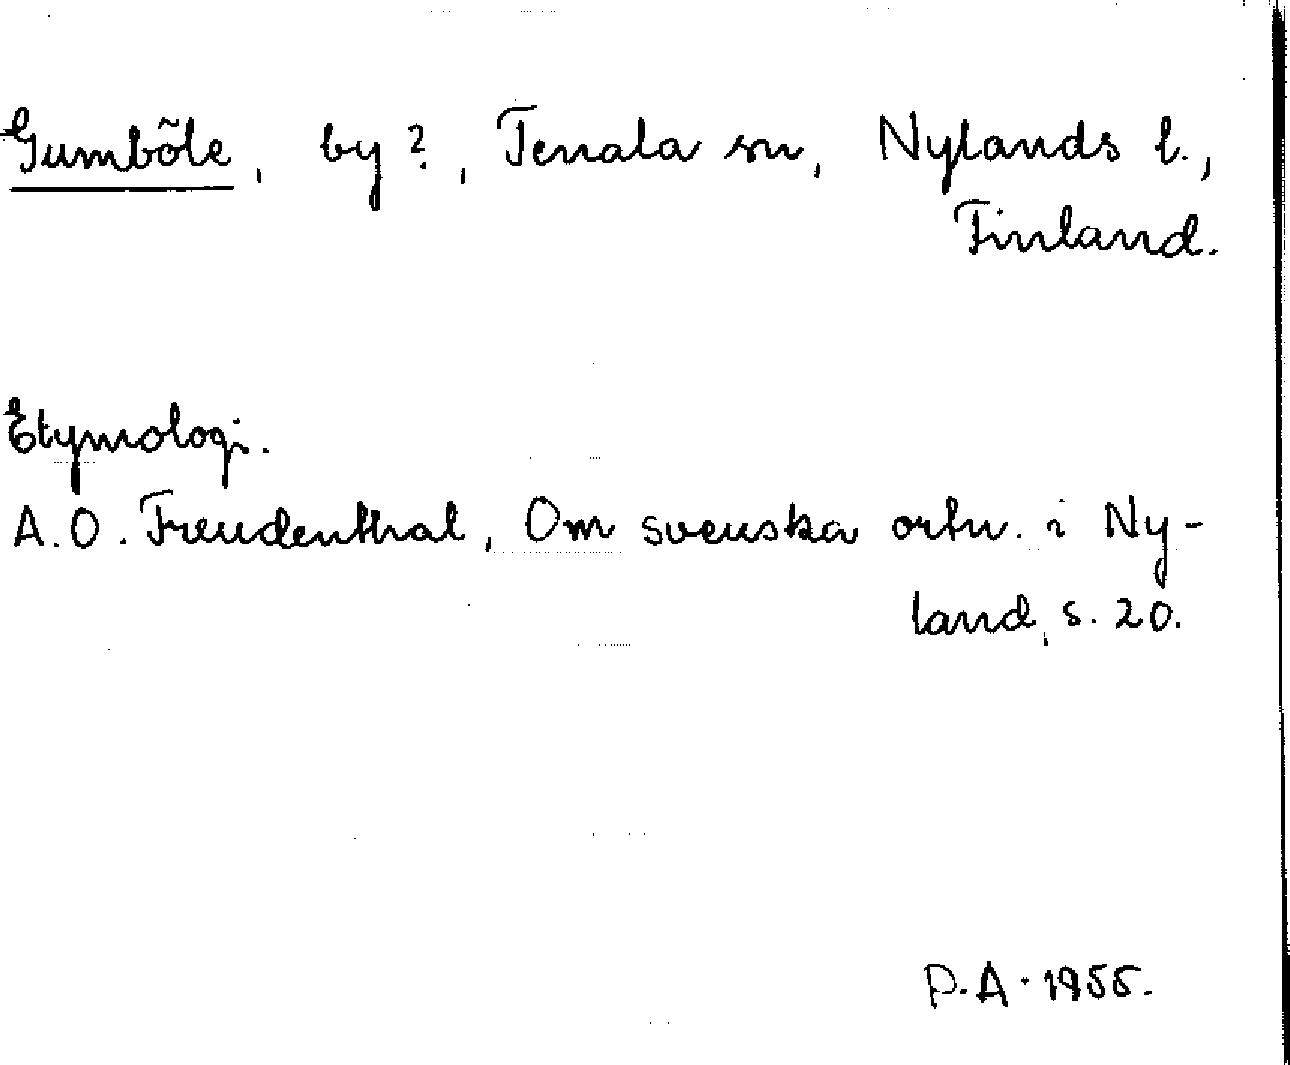 Gumböle, by?, Tenala sn, Nylands l.,
Finland.
Etymologi.
A.O. Freudenthal, Om svenska ortn. i Ny-
land, s. 20.
P.A. 1955.